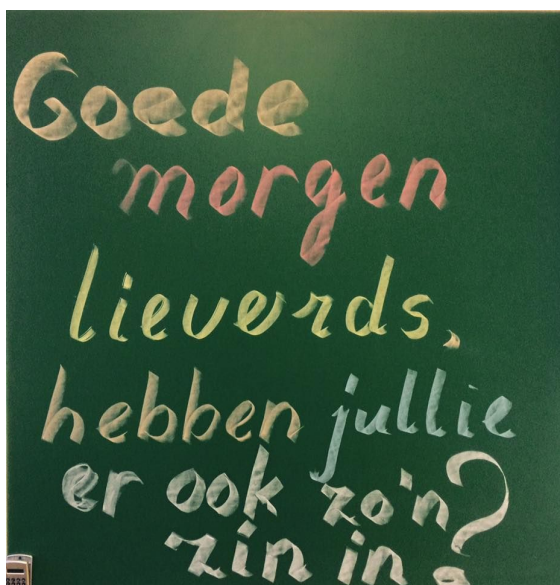 Goede
morgen
lieverds,
hebben jullie
er ook zo'n
zin in?